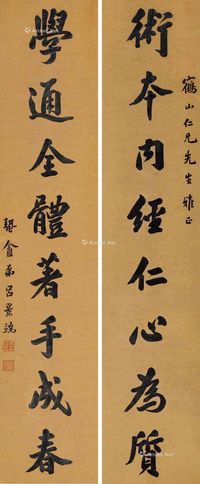 鶴山仁兄先生雅正
術本內經仁心為質
學通全體著手成春
弟呂景端